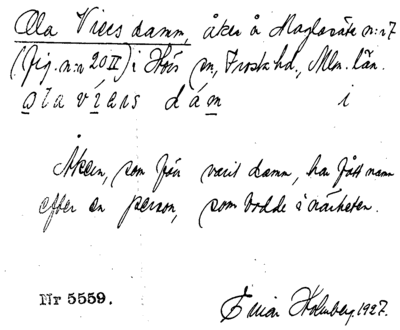 Ola Viers damm, åker å Maglasäte n:r 7
(fig. n:r 20 II) i Hörs sn, Frosta hd., Mlm. län.
ola víers dám i
Åkern, som förr varit damm, har fått namn
efter en person, som bodde i närheten.
Nr 5559.
Einar Holmberg. 1927.